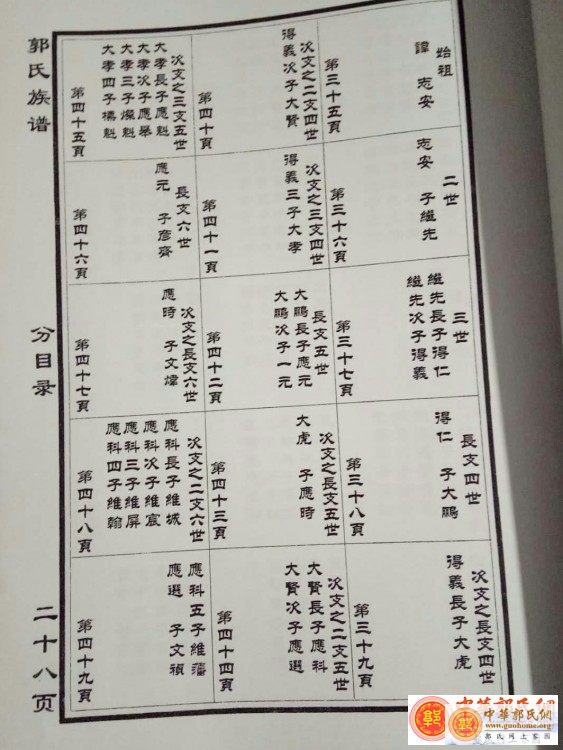 郭氏族谱
分目录
二十八页
始祖
諱 志安
第三十五頁
二世
志安 子繼先
第三十六頁
三世
繼先長子得仁
繼先次子得義
第三十七頁
長支四世
得仁 子大鵬
第三十八頁
次支之長支四世
得義長子大虎
第三十九頁
次支之二支四世
得義次子大賢
第四十頁
次支之三支四世
得義三子大孝
第四十一頁
長支五世
大鵬長子應元
大鵬次子一元
第四十二頁
次支之長支五世
大虎 子應時
第四十三頁
次支之二支五世
大賢長子應科
大賢次子應選
第四十四頁
次支之三支五世
大孝長子應魁
大孝次子應舉
大孝三子燦魁
大孝四子標魁
第四十五頁
長支六世
應元 子彦齊
第四十六頁
次支之長支六世
應時 子文煒
第四十七頁
次支之二支六世
應科長子維城
應科次子維宸
應科三子維屏
應科四子維翰
第四十八頁
應科五子維藩
應選 子文禎
第四十九頁
中華郭氏網
中華郭氏網
www.guohome.org
郭氏网上家园